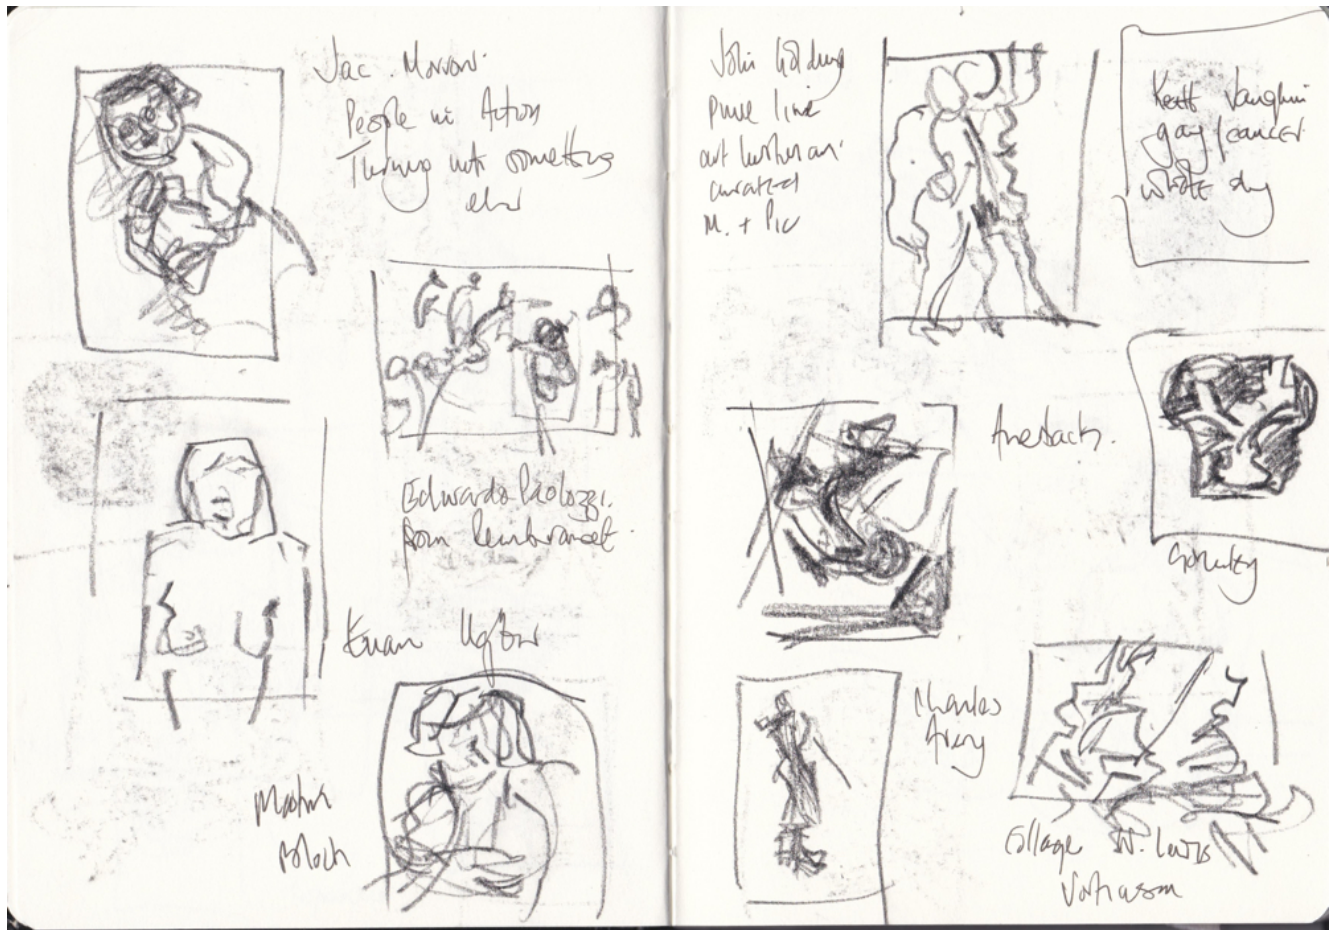 People in Action
Turning into something
else
Eduardo Paolozzi.
from Rembrandt.
Euan Uglow
Martin
Bloch
John Golding
pure line
art historian
curated
M. + Pic
Keith Vaughan
gay / cancer
wrote diary
Auerbach.
Charles
Avery
Collage W. Lewis
Vorticism